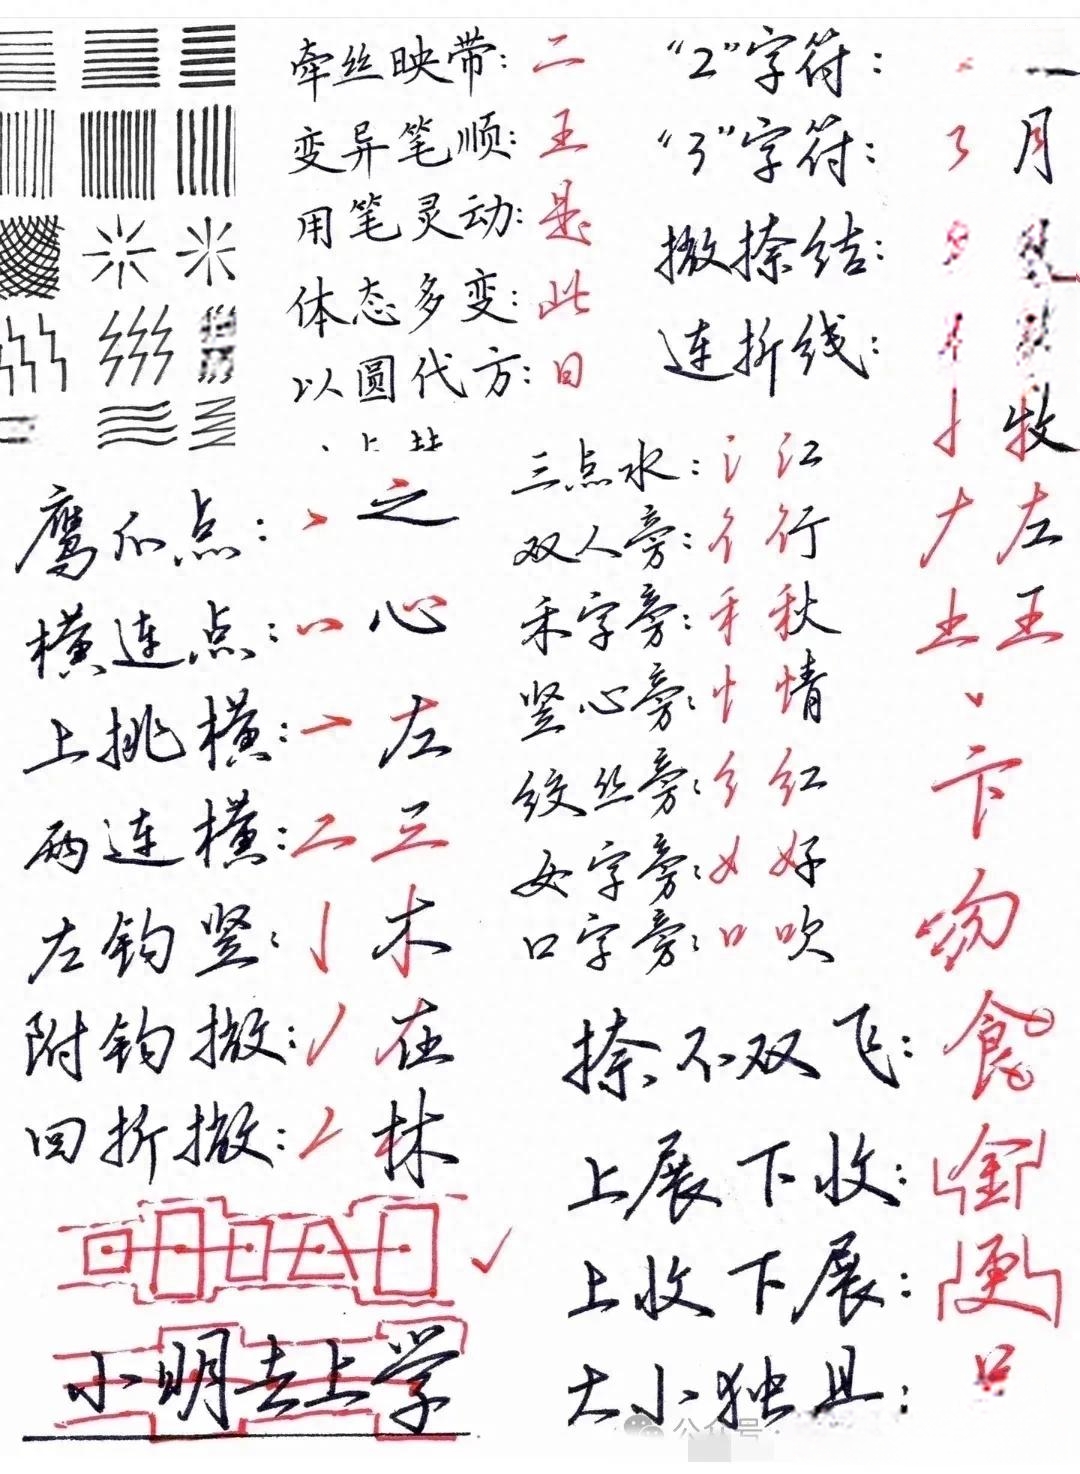 牵丝映带：二
变异笔顺：王
用笔灵动：是
体态多变：此
以圆代方：日
“2”字符：
“3”字符：3 月
撇捺结：
连折线：
牧
左
王
鹰爪点：之
横连点：心
上挑横：左
两连横：二 三
左钩竖：木
附钩撇：在
回折撇：林
三点水：氵 江
双人旁：彳 行
禾字旁：禾 秋
竖心旁：忄 情
绞丝旁：纟 红
女字旁：女 好
口字旁：口 吹
卞
吻
捺不双飞：食
上展下收：金
上收下展：更
大小独具：口
小明去上学
公众号